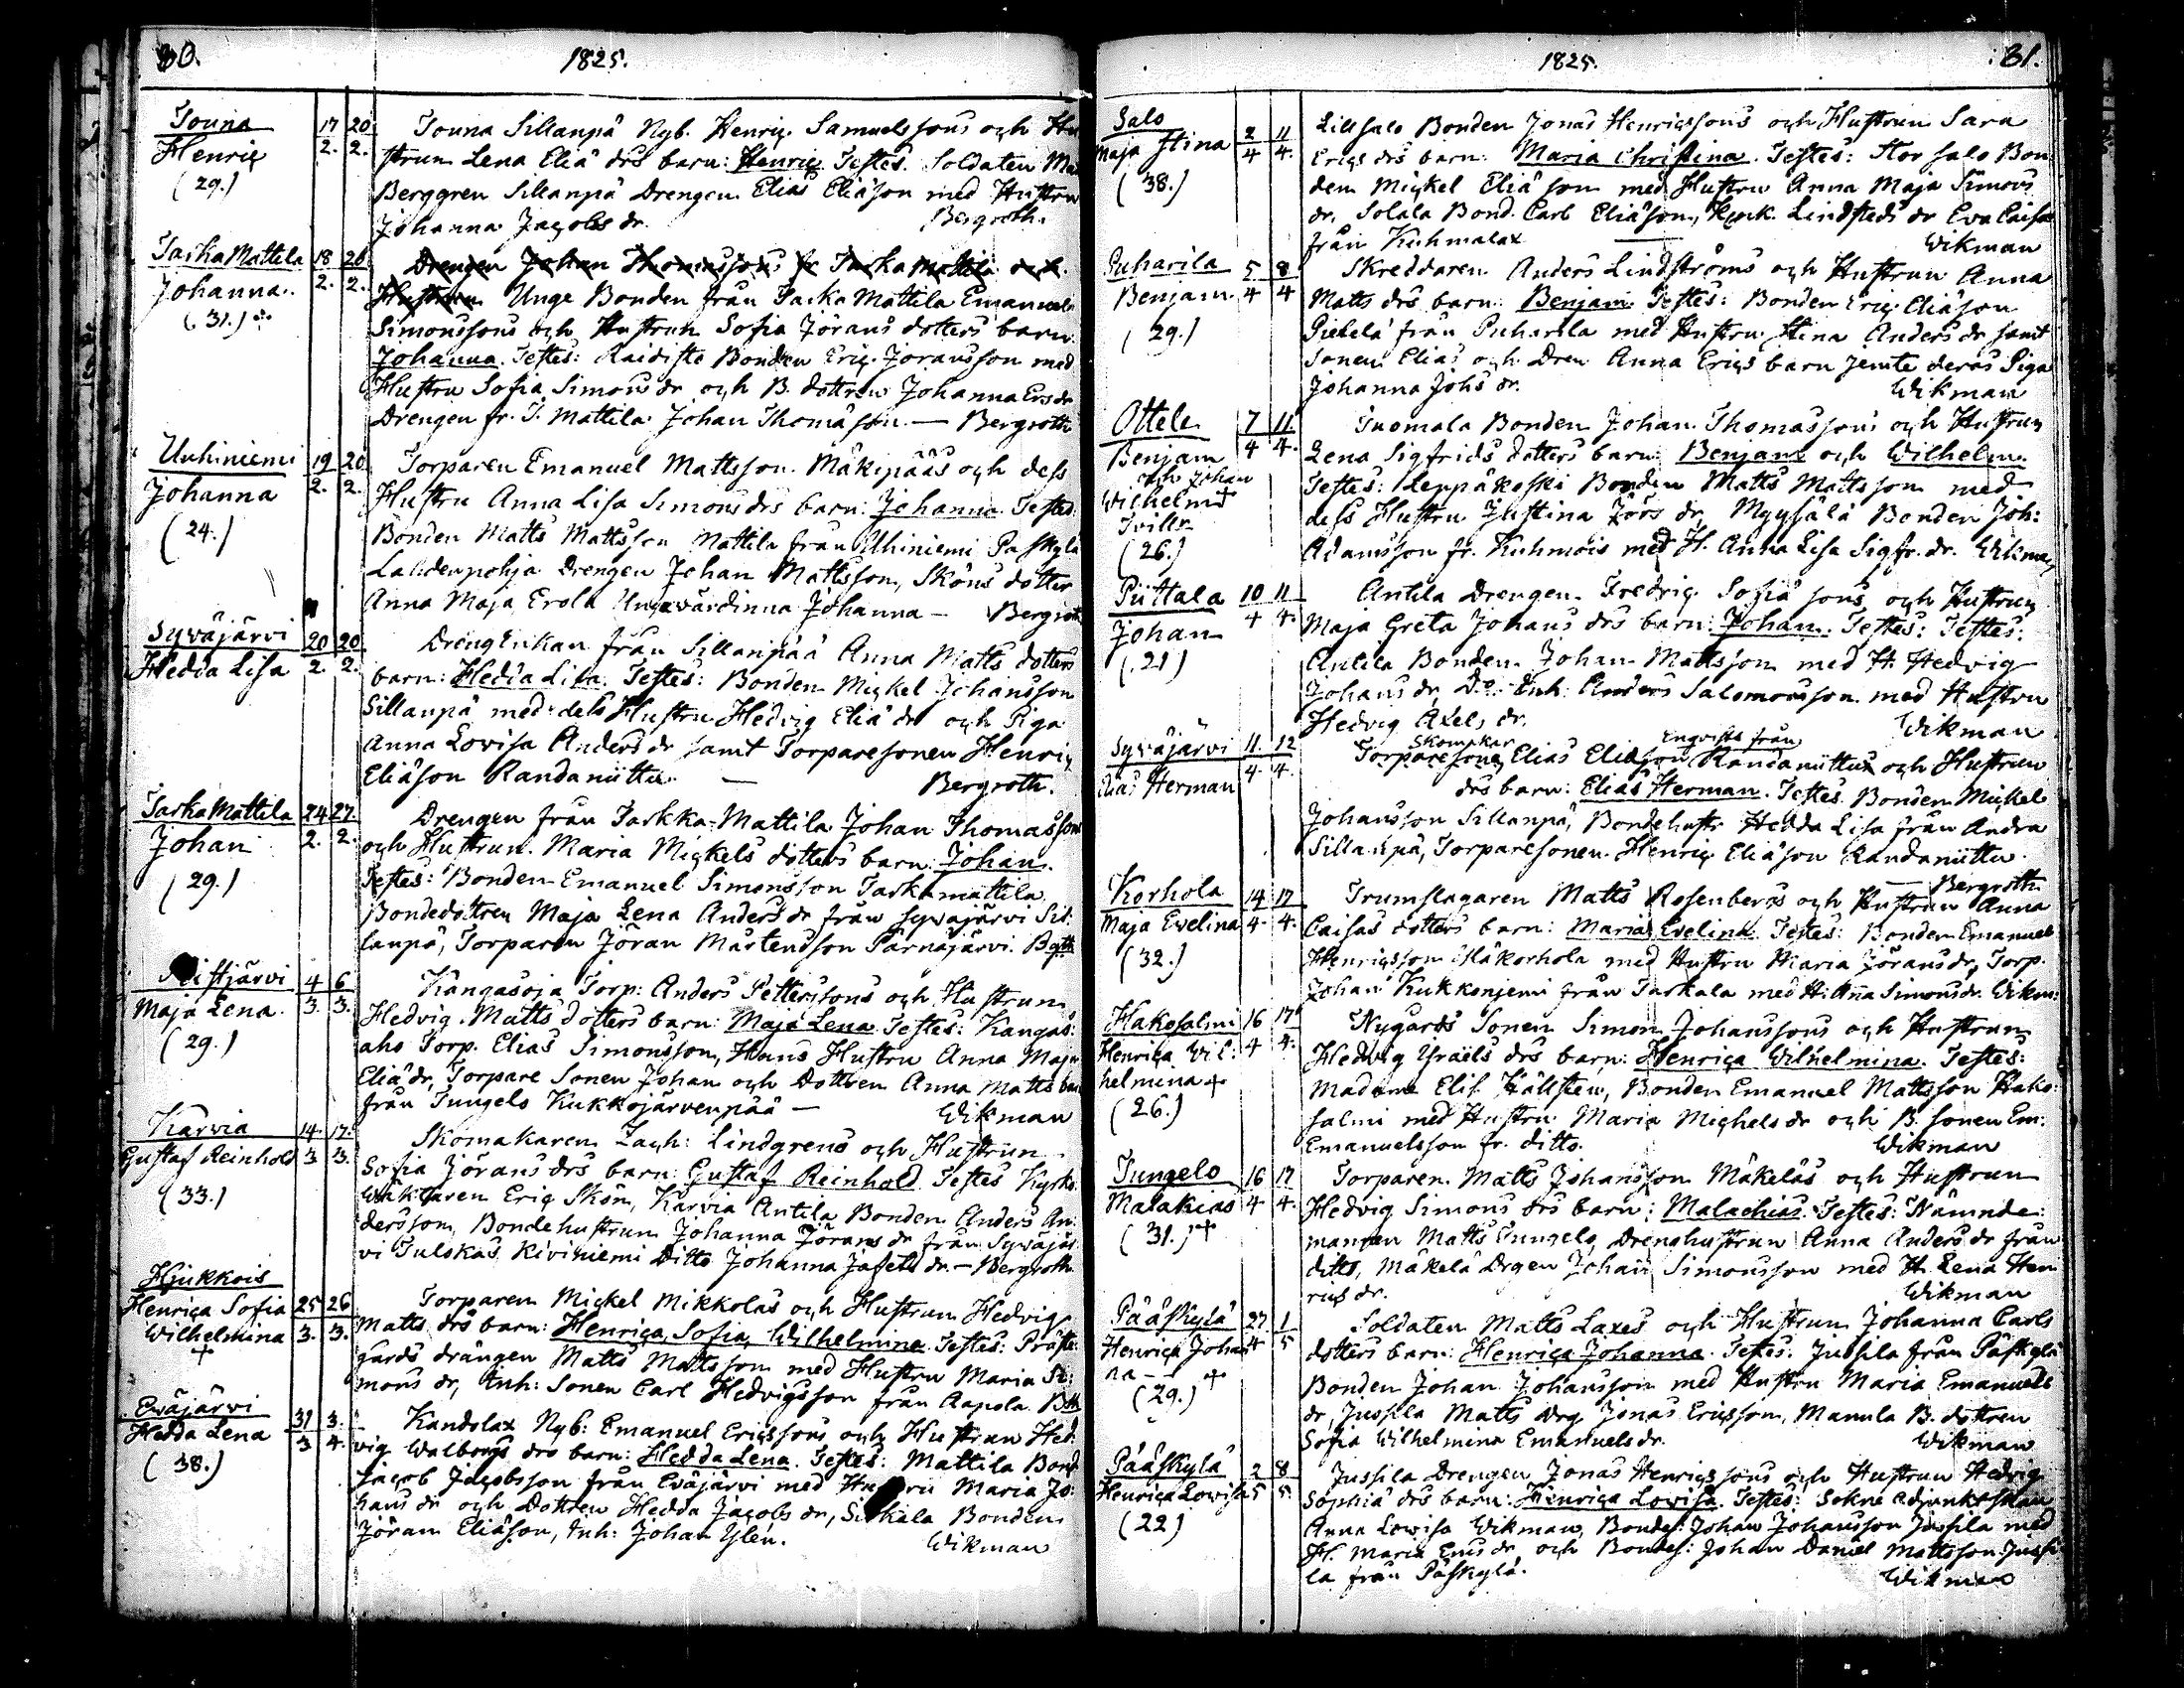 30.
1825.
Jouna 17 20
Henric 2. 2.
(29.)
Jouna Sillanpä Nyb. Henric Samuelssons och Hu
strun Lena Eliæ drs barn: Henric Testes. Soldaten
Berggren Sillanpä Drengen Elias Eliæson med Hustru
Johanna Jacobs dr. Bergroth.
Jaska Mattila 18 20
Johanna 2. 2.
(31.)
Drengen Johan Thomassons fr Jaska Mattila och
Hustrun Unge Bonden från Jaska Mattila Emanuel
Simonssons och Hustrun Sofia Jörans dotters barn
Johanna. Testes: Raidisto Bonden Eric Joransson med
Hustru Sofia Simons dr och B. dottren Johanna Ers dr
Drengen fr. J. Mattila Johan Thomasson. — Bergroth
Unhiniemi 19 20
Johanna 2. 2.
(24.)
Torparen Emanuel Mattsson Mäkipääs och dess
Hustru Anna Lisa Simons drs barn: Johanna Testes:
Bonden Matts Mattsson Mattila från Uhiniemi Paskylä
Lahdenpohja Drengen Johan Mattsson, Sköns dotter
Anna Maja Erola Ungvärdinna Johanna — Bergroth
Sywäjärvi 20 20
Hedda Lisa 2. 2.
Drengenkan från Sillanpää Anna Matts dotters
barn: Hedda Lisa. Testes: Bonden Mickel Johansson
Sillanpä med dess Hustru Hedvig Eliæ dr och Piga
Anna Lovisa Anders dr samt Torparesonen Henric
Eliæson Randaniittu. — Bergroth.
Jaska Mattila 24 27.
Johan 2. 2.
(29.)
Drengen från Jaskka-Mattila Johan Thomassons
och Hustrun Maria Mickels dotters barn: Johan.
Testes: Bonden Emanuel Simonsson Jaskamattila
Bondedottren Maja Lena Anders dr från Sywajärvi Sil-
lanpä, Torparen Jöran Mårtensson Pärnäjärvi. Bgth
Ristjärvi 4 6
Maja Lena. 3. 3.
(29.)
Kangasoja Torp: Anders Petterssons och Hustrun
Hedvig Matts dotters barn: Maja Lena Testes: Kangas-
aho Torp. Elias Simonsson, Hans Hustru Anna Maja
Eliæ dr, Torpare Sonen Johan och Dottren Anna Matts barn
från Jungelo Kukkojärvenpää — Wikman
Karvia 14. 17.
Gustaf Reinhold 3 3.
(33.)
Skomakaren Zach: Lindgrens och Hustrun
Sofia Jörans drs barn: Gustaf Reinhold Testes Kyrko-
Wäktaren Eric Skön, Karvia Antila Bonden Anders An-
dersson, Bondehustrun Johanna Jörans dr från Sywäjär-
vi Julskas Kiviniemi Ditto Johanna Jafets dr. — Bergroth
Hjukkois
Henrica Sofia 25 26
Wilhelmina 3. 3.
+
Torparen Mickel Mikkolas och Hustrun Hedvig
Matts drs barn: Henrica, Sofia, Wilhelmina Testes: Präste-
gårds drängen Matts Mattsson med Hustru Maria Si-
mons dr, Inh: Sonen Carl Hedvigsson från Aapola. Bth
Eväjärvi 31 3.
Hedda Lena 3 4.
(38.)
Kandolax Nyb: Emanuel Ericssons och Hustrun Hed-
vig Walborgs drs barn: Hedda Lena. Testes: Mattila Bond
Jacob Jacobsson från Eväjärvi med Hustru Maria Jo-
hans dr och Dottren Hedda Jacobs dr, Bonden
Jöran Eliæson, Inh: Johan Ylén. Wikman
1825.
31.
Salo 2 11
Maja Stina 4 4.
(38.)
Lillsalo Bonden Jonas Henricssons och Hustrun Sara
Erics drs barn: Maria Christina. Testes: Stor salo Bon-
den Mickel Eliæ son med Hustru Anna Maja Simons
dr, Solala Bond. Carl Eliæson, Lindsteds dr Eva Caisa
från Kuhmalax — Wikman
Puharila 5 8
Benjam 4 4
(29.)
Skreddaren Anders Lindströms och Hustrun Anna
Matts drs barn: Benjam Testes: Bonden Eric Eliæson
från Puharila med Hustru Stina Anders dr samt
Sonen Elias och Dren Anna Erics barn jemte deras Piga
Johanna Johs dr. Wikman
Ottele 7 11.
Benjam 4 4.
och Johan
Wilhelm +
Tvill:r
(26.)
Tuomala Bonden Johan Thomassons och Hustrun
Lena Sigfrids dotters barn: Benjam och Wilhelm.
Testes: Leppäkoski Bonden Matts Mattsson med
dess Hustru Justina Jörs dr, Myysälä Bonden Joh:
Adamsson fr. Kuhmois med H. Anna Lisa Sigfr. dr. Wikman
Piittala 10 11
Johan 4 4.
(21)
Antila Drengen Fredric Sofiæ sons och Hustrun
Maja Greta Johans drs barn: Johan. Testes: Testes:
Antila Bonden Johan Mattsson med H. Hedvig
Johans dr, D:o Inh: Anders Salomonsson med Hustru
Hedvig Axels dr. Wikman
Sywäjärvi 11. 12
Elias Herman 4. 4.
Skomakar Engvists från
Torparesons Elias Eliæson Randaniittus och Hustrun
drs barn: Elias Herman. Testes Bonden Mickel
Johansson Sillanpä, Bondehustr Hedda Lisa från Andra
Sillanpä, Torparesonen Henric Eliæson Randaniittu.
— Bergroth
Korhola 14 17
Maja Evelina 4. 4.
(32.)
Trumslagaren Matts Rosenbergs och Hustrun Anna
Caisas dotters barn: Maria Evelina. Testes: Bonden Emanuel
Henricsson Mäkorhola med Hustru Maria Jörans dr, Torp.
Johan Kukkonjemi från Jaskala med H. Anna Simons dr. Wikm:
Hakosalmi 16 17
Henrica Wil- 4 4.
helmina +
(26.)
Nygårds Sonen Simon Johanssons och Hustrun
Hedvig Yraëls drs barn: Henrica Wilhelmina. Testes:
Madame Elis. Hällsten, Bonden Emanuel Mattsson Hako-
salmi med Hustru Maria Michels dr och B. Sonen Em:
Emanuelsson fr. ditto. Wikman
Jungelo 16 17
Malakias 4 4.
(31.) +
Torparen Matts Johansson Mäkeläs och Hustrun
Hedvig Simons drs barn: Malachias. Testes: Nämnde-
mannen Matts Jungelo, Drenghustrun Anna Anders dr från
ditto, Mäkelä Drgen Johan Simonsson med H. Lena Hen
rics dr. Wikman
Pääskylä 27. 1
Henrica Johan- 4 5
na —
(29.) +
Soldaten Matts Laxes och Hustrun Johanna Carls
dotters barn: Henrica Johanna. Testes: Jussila från Päskylä
Bonden Johan Johansson med Hustru Maria Emanuels
dr, Jussila Matts Drg Jonas Ericsson, Manula B. dottren
Sofia Wilhelmina Emanuels dr. Wikman
Pääskylä 2 8
Henrica Lovisa 5 5.
(22)
Jussila Drengen Jonas Henricssons och Hustrun Hedvig
Sophiæ drs barn: Henrica Lovisa. Testes: Sokne Adjunktskan
Anna Lowisa Wikman, Bondes: Johan Johansson Jussila med
H. Maria Ems dr och Bondes: Johan Daniel Mattsson Jussi-
la från Päskylä. Wikman